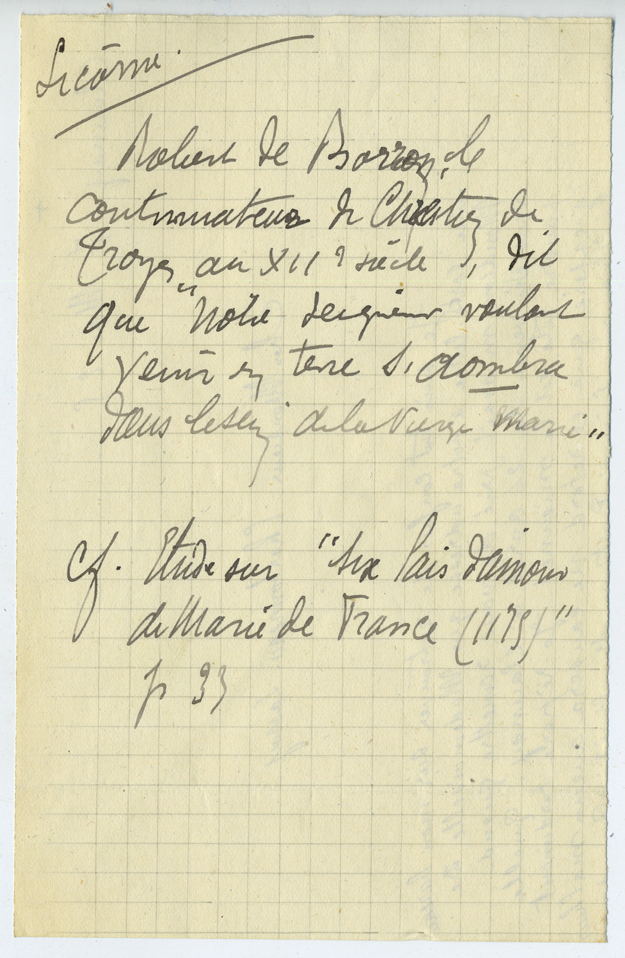 Licorne.
Robert de Borron, le
continuateur de Chrestien de
Troyes, au XIIe siècle, dit
que "Notre Seigneur voulant
venir en terre s'aombra
dans le sein de la Vierge Marie"
cf. Etude sur "six lais d'amour
de Marie de France (1175)"
p 33